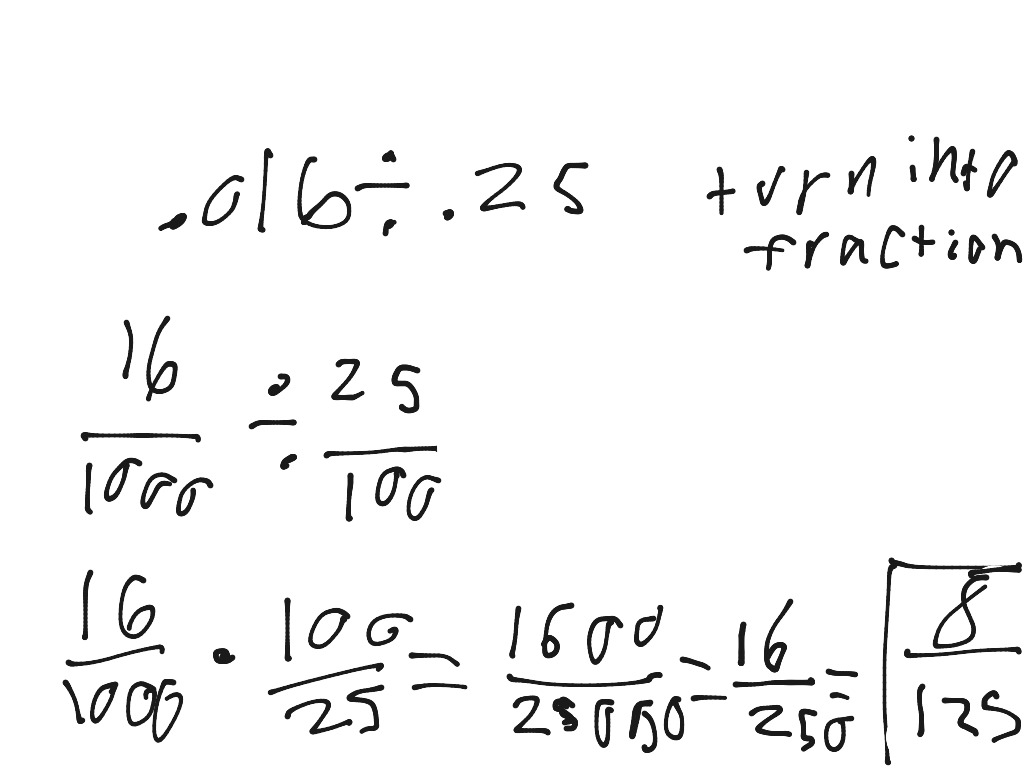 .016 ÷ .25 turn into
fraction
16/1000 ÷ 25/100
16/1000 · 100/25 = 1600/25000 = 16/250 = 8/125